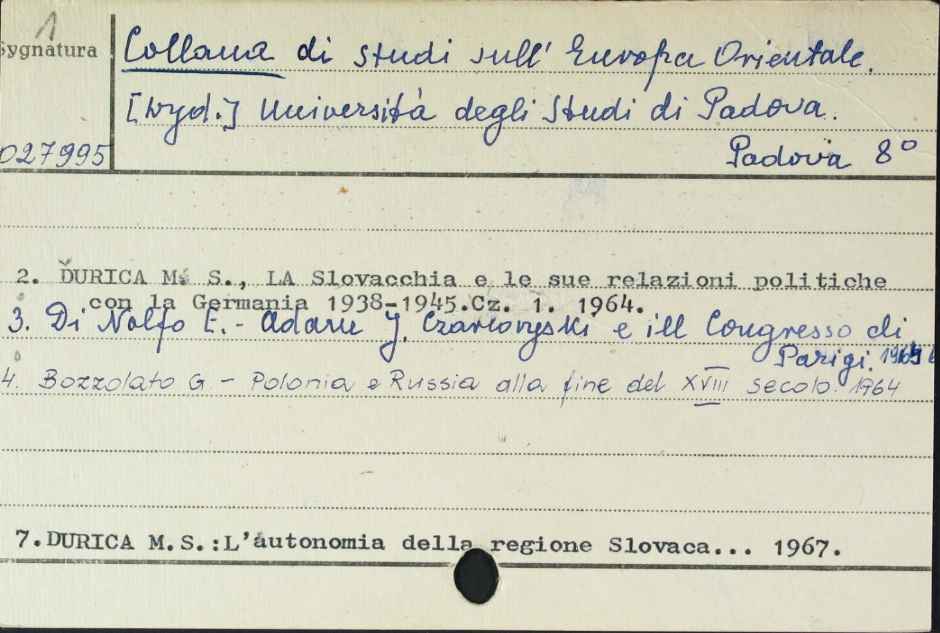 1
Sygnatura
Collana di studi sull' Europa Orientale.
[Wyd.] Università degli Studi di Padova.
027995
Padova 8°
2. ĎURICA M. S., LA Slovacchia e le sue relazioni politiche
con la Germania 1938-1945.Cz. 1. 1964.
3. Di Nolfo E. - Adam J. Czartoryski e ill Congresso di
Parigi.
4. Bozzolato G. - Polonia e Russia alla fine del XVIII secolo. 1964
7.DURICA M.S.:L'autonomia della regione Slovaca... 1967.